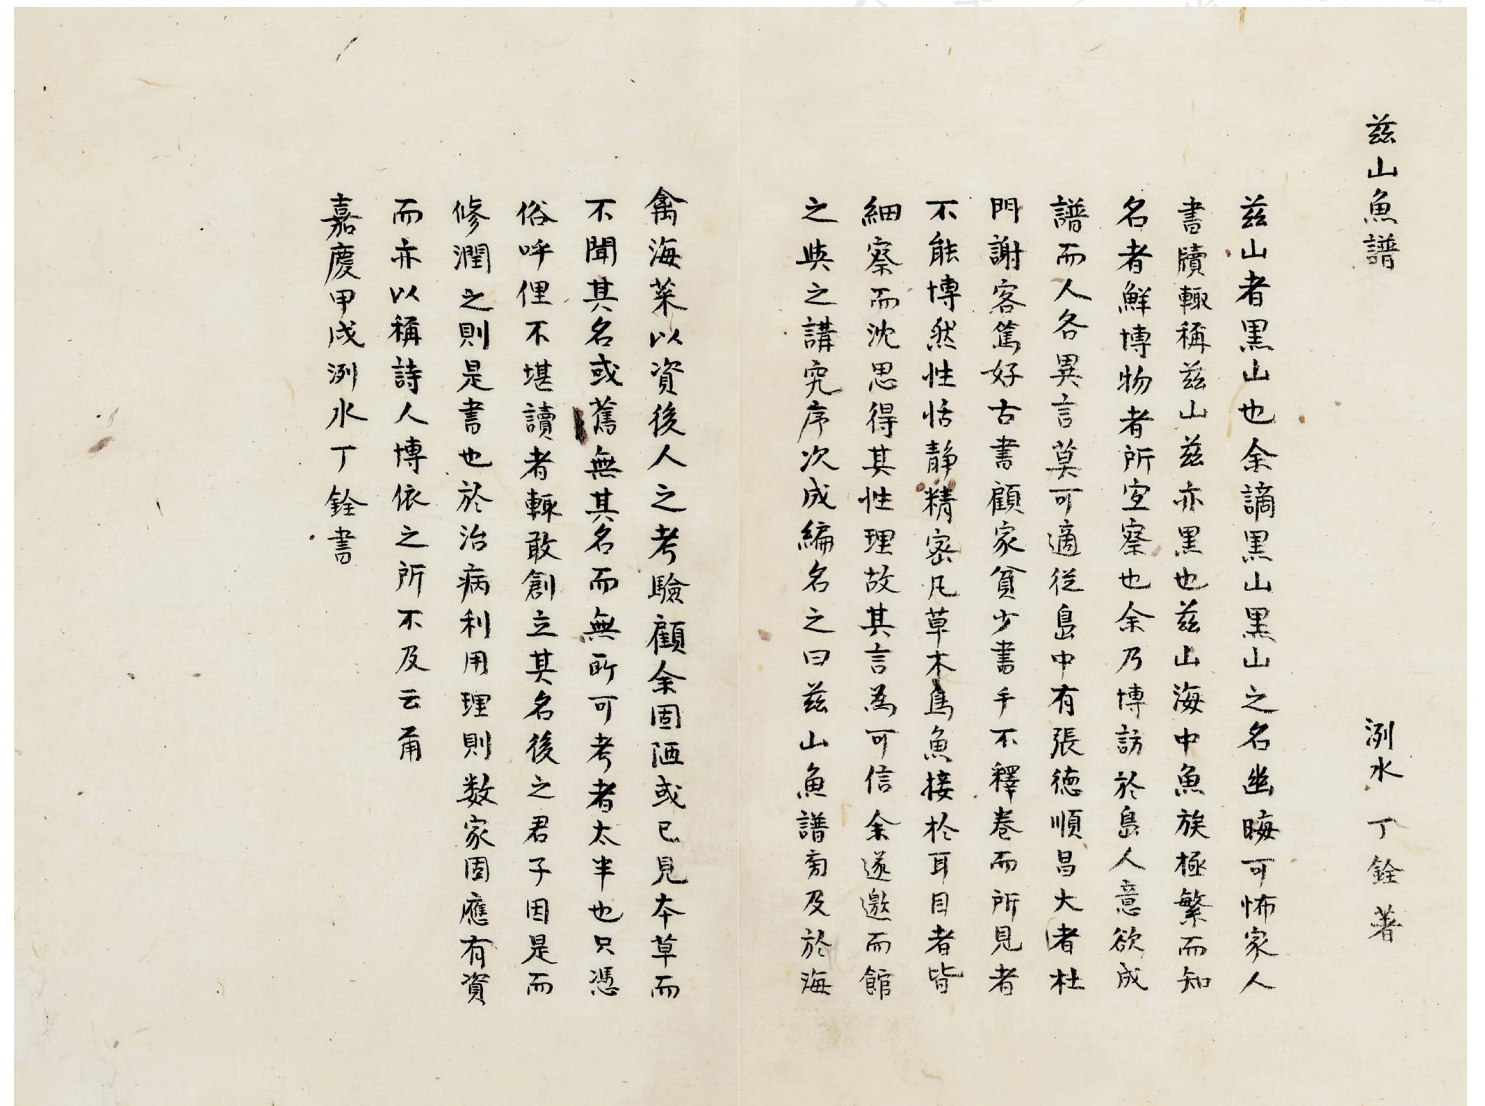 茲山魚譜 洌水 丁銓著
茲山者黑山也余謫黑山黑山之名幽晦可怖家人
書牘輒稱茲山茲亦黑也茲山海中魚族極繁而知
名者鮮博物者所宜察也余乃博訪於島人意欲成
譜而人各異言莫可適從島中有張德順昌大者杜
門謝客篤好古書顧家貧少書手不釋卷而所見者
不能博然性恬靜精密凡草木鳥魚接於耳目者皆
細察而沈思得其性理故其言為可信余遂邀而館
之與之講究序次成編名之曰茲山魚譜旁及於海
禽海菜以資後人之考驗顧余固陋或已見本草而
不聞其名或舊無其名而無所可考者太半也只憑
俗呼俚不堪讀者輒敢創立其名後之君子因是而
修潤之則是書也於治病利用理則数家固應有資
而亦以稱詩人博依之所不及云甭
嘉慶甲戌洌水丁銓書